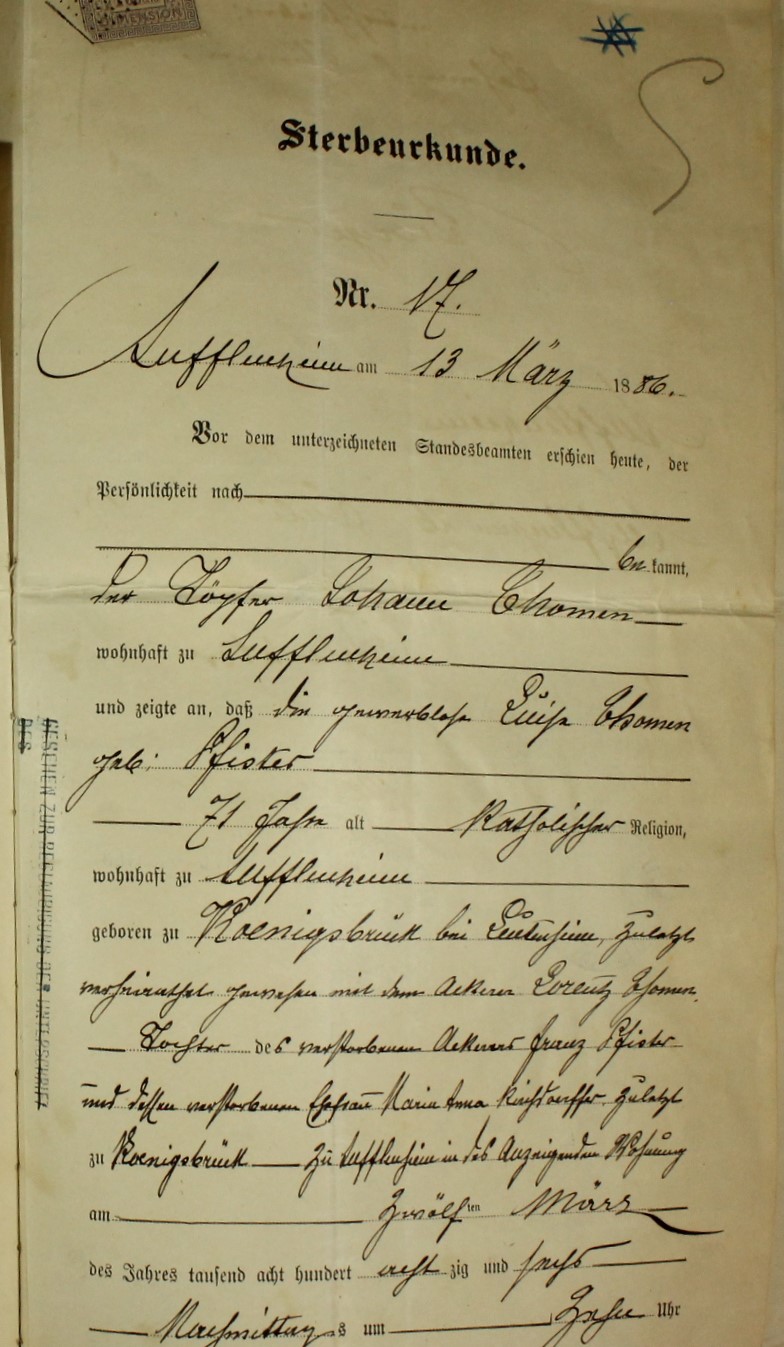 DIMENSION
Sterbeurkunde.
Nr. 17.
Sufflenheim am 13 März 1886.
Vor dem unterzeichneten Standesbeamten erschien heute, der
Persönlichkeit nach
bekannt,
der Töpfer Johann Thomen
wohnhaft zu Sufflenheim
und zeigte an, daß die gewerblose Luise Thomen
geb: Pfister
71 Jahre alt katholischer Religion,
wohnhaft zu Sufflenheim
geboren zu Koenigsbrück bei Leutenheim, zuletzt
verheirathet gewesen mit dem Ackerer Lorentz Thomen,
Tochter des verstorbenen Ackerers Franz Pfister
und dessen verstorbenen Ehefrau Maria Anna Kirchdorffer zuletzt
zu Koenigsbrück zu Sufflenheim in des Anzeigenden Wohnung
am zwölften März
des Jahres tausend acht hundert achtzig und sechs
Nachmittags um zehn Uhr